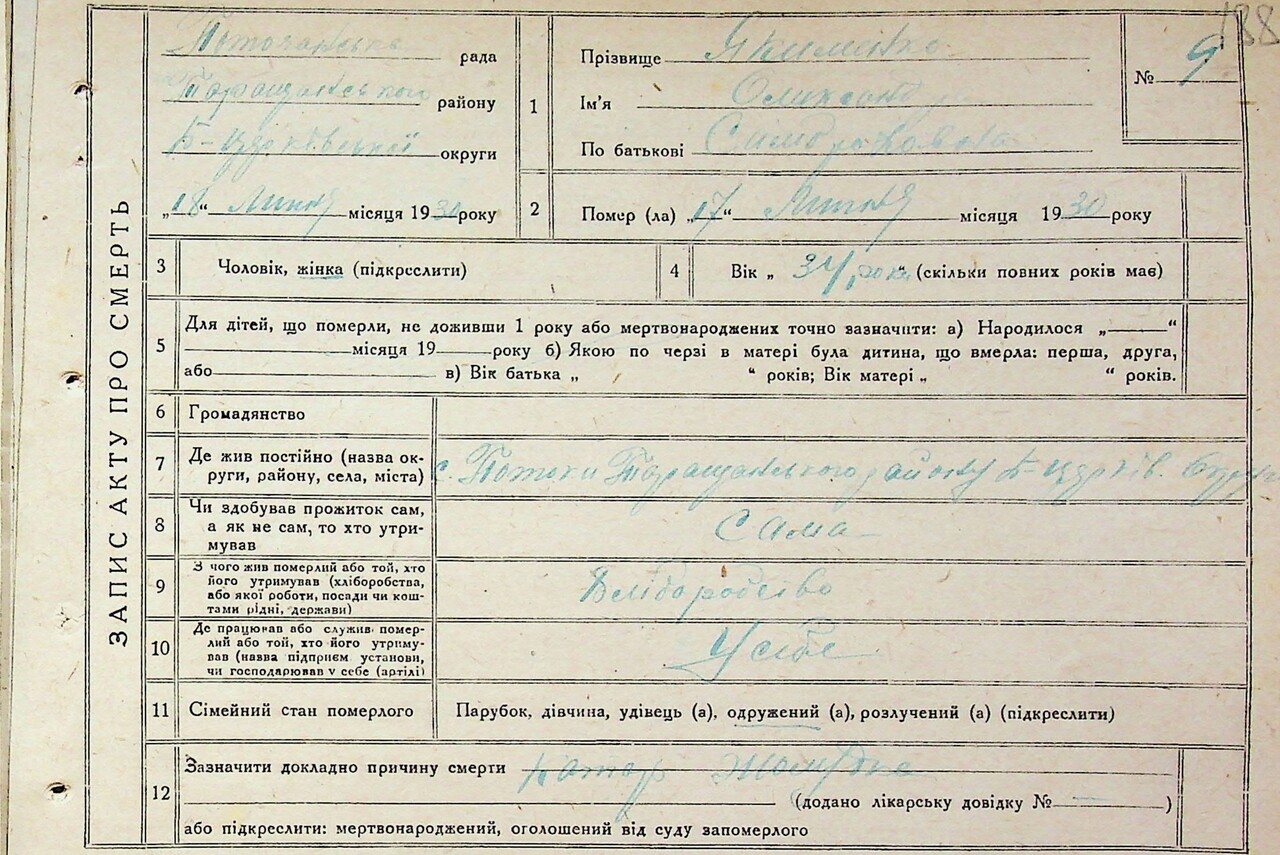 188
ЗАПИС АКТУ ПРО СМЕРТЬ
Поточанська рада
Таращанського району
Б-церківської округи
„18“ Липня місяця 1930 року
1
Прізвище Якименко
Ім'я Олександра
По батькові
№ 9
2
Помер (ла) „17“ Липня місяця 1930 року
3
Чоловік, жінка (підкреслити)
4
Вік „34 роки“ (скільки повних років має)
5
Для дітей, що померли, не доживши 1 року або мертвонароджених точно зазначити: а) Народилося „ “
місяця 19 року б) Якою по черзі в матері була дитина, що вмерла: перша, друга,
або в) Вік батька „ “ років; Вік матері „ “ років.
6
Громадянство
7
Де жив постійно (назва ок-
руги, району, села, міста)
с. Потоки Таращанського району Б-церків. округи
8
Чи здобував прожиток сам,
а як не сам, то хто утри-
мував
Сама
9
З чого жив померлий або той, хто
його утримував (хліборобства,
або якої роботи, посади чи кош-
тами рідні, держави)
Хліборобство
10
Де працював або служив помер-
лий або той, хто його утриму-
вав (назва підприєм установи,
чи господарював у себе (артілі)
У себе
11
Сімейний стан померлого
Парубок, дівчина, удівець (а), одружений (а), розлучений (а) (підкреслити)
12
Зазначити докладно причину смерти Катар
(додано лікарську довідку № )
або підкреслити: мертвонароджений, оголошений від суду запомерлого